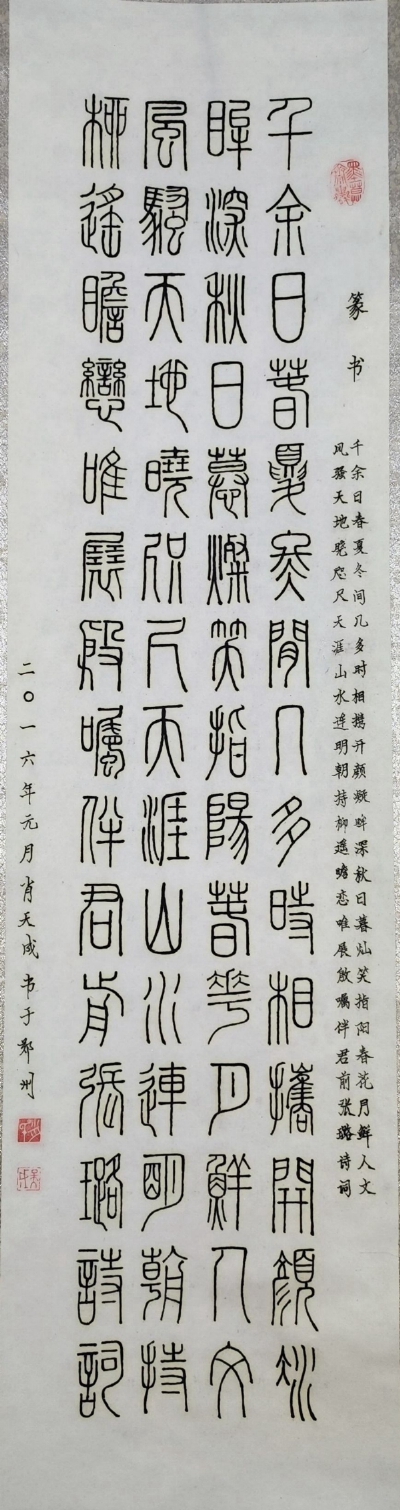 篆书
千余日春夏冬间几多时相携开颜凝眸深秋日暮灿笑指阳春花月鲜人文
风骚天地晓咫尺天涯山水连明朝持柳遥瞻恋唯展殷嘱伴君前张璐诗词
千余日春夏冬閒几多時相攜開顏凝
眸深秋日暮燦笑指陽春花月鮮人文
風騷天地曉咫尺天涯山水連明朝持
柳遙瞻戀唯展殷囑伴君前張璐詩詞
二〇一六年元月肖天成书于郑州